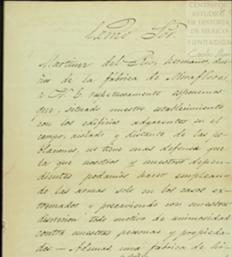 CENTRO DE
ESTUDIOS
DE HISTORIA
DE MEXICO
FUNDACIÓN
Exmo Sor.
Martinez del Rio hermanos, due-
ños de la fabrica de Miraflores
a V. E. respetuosamente esponemos
que, situado nuestro establecimiento
con los edificios adyacentes en el
campo, aislado y distante de las po-
blaciones, no tiene mas defensa que
la que nosotros y nuestros depen-
dientes podamos hacer emplean-
do las armas solo en los casos es-
tremados y precaviendo con nuestra
discrecion todo motivo de animosidad
contra nuestras personas y propieda-
des — Ademas, una fabrica de hi-